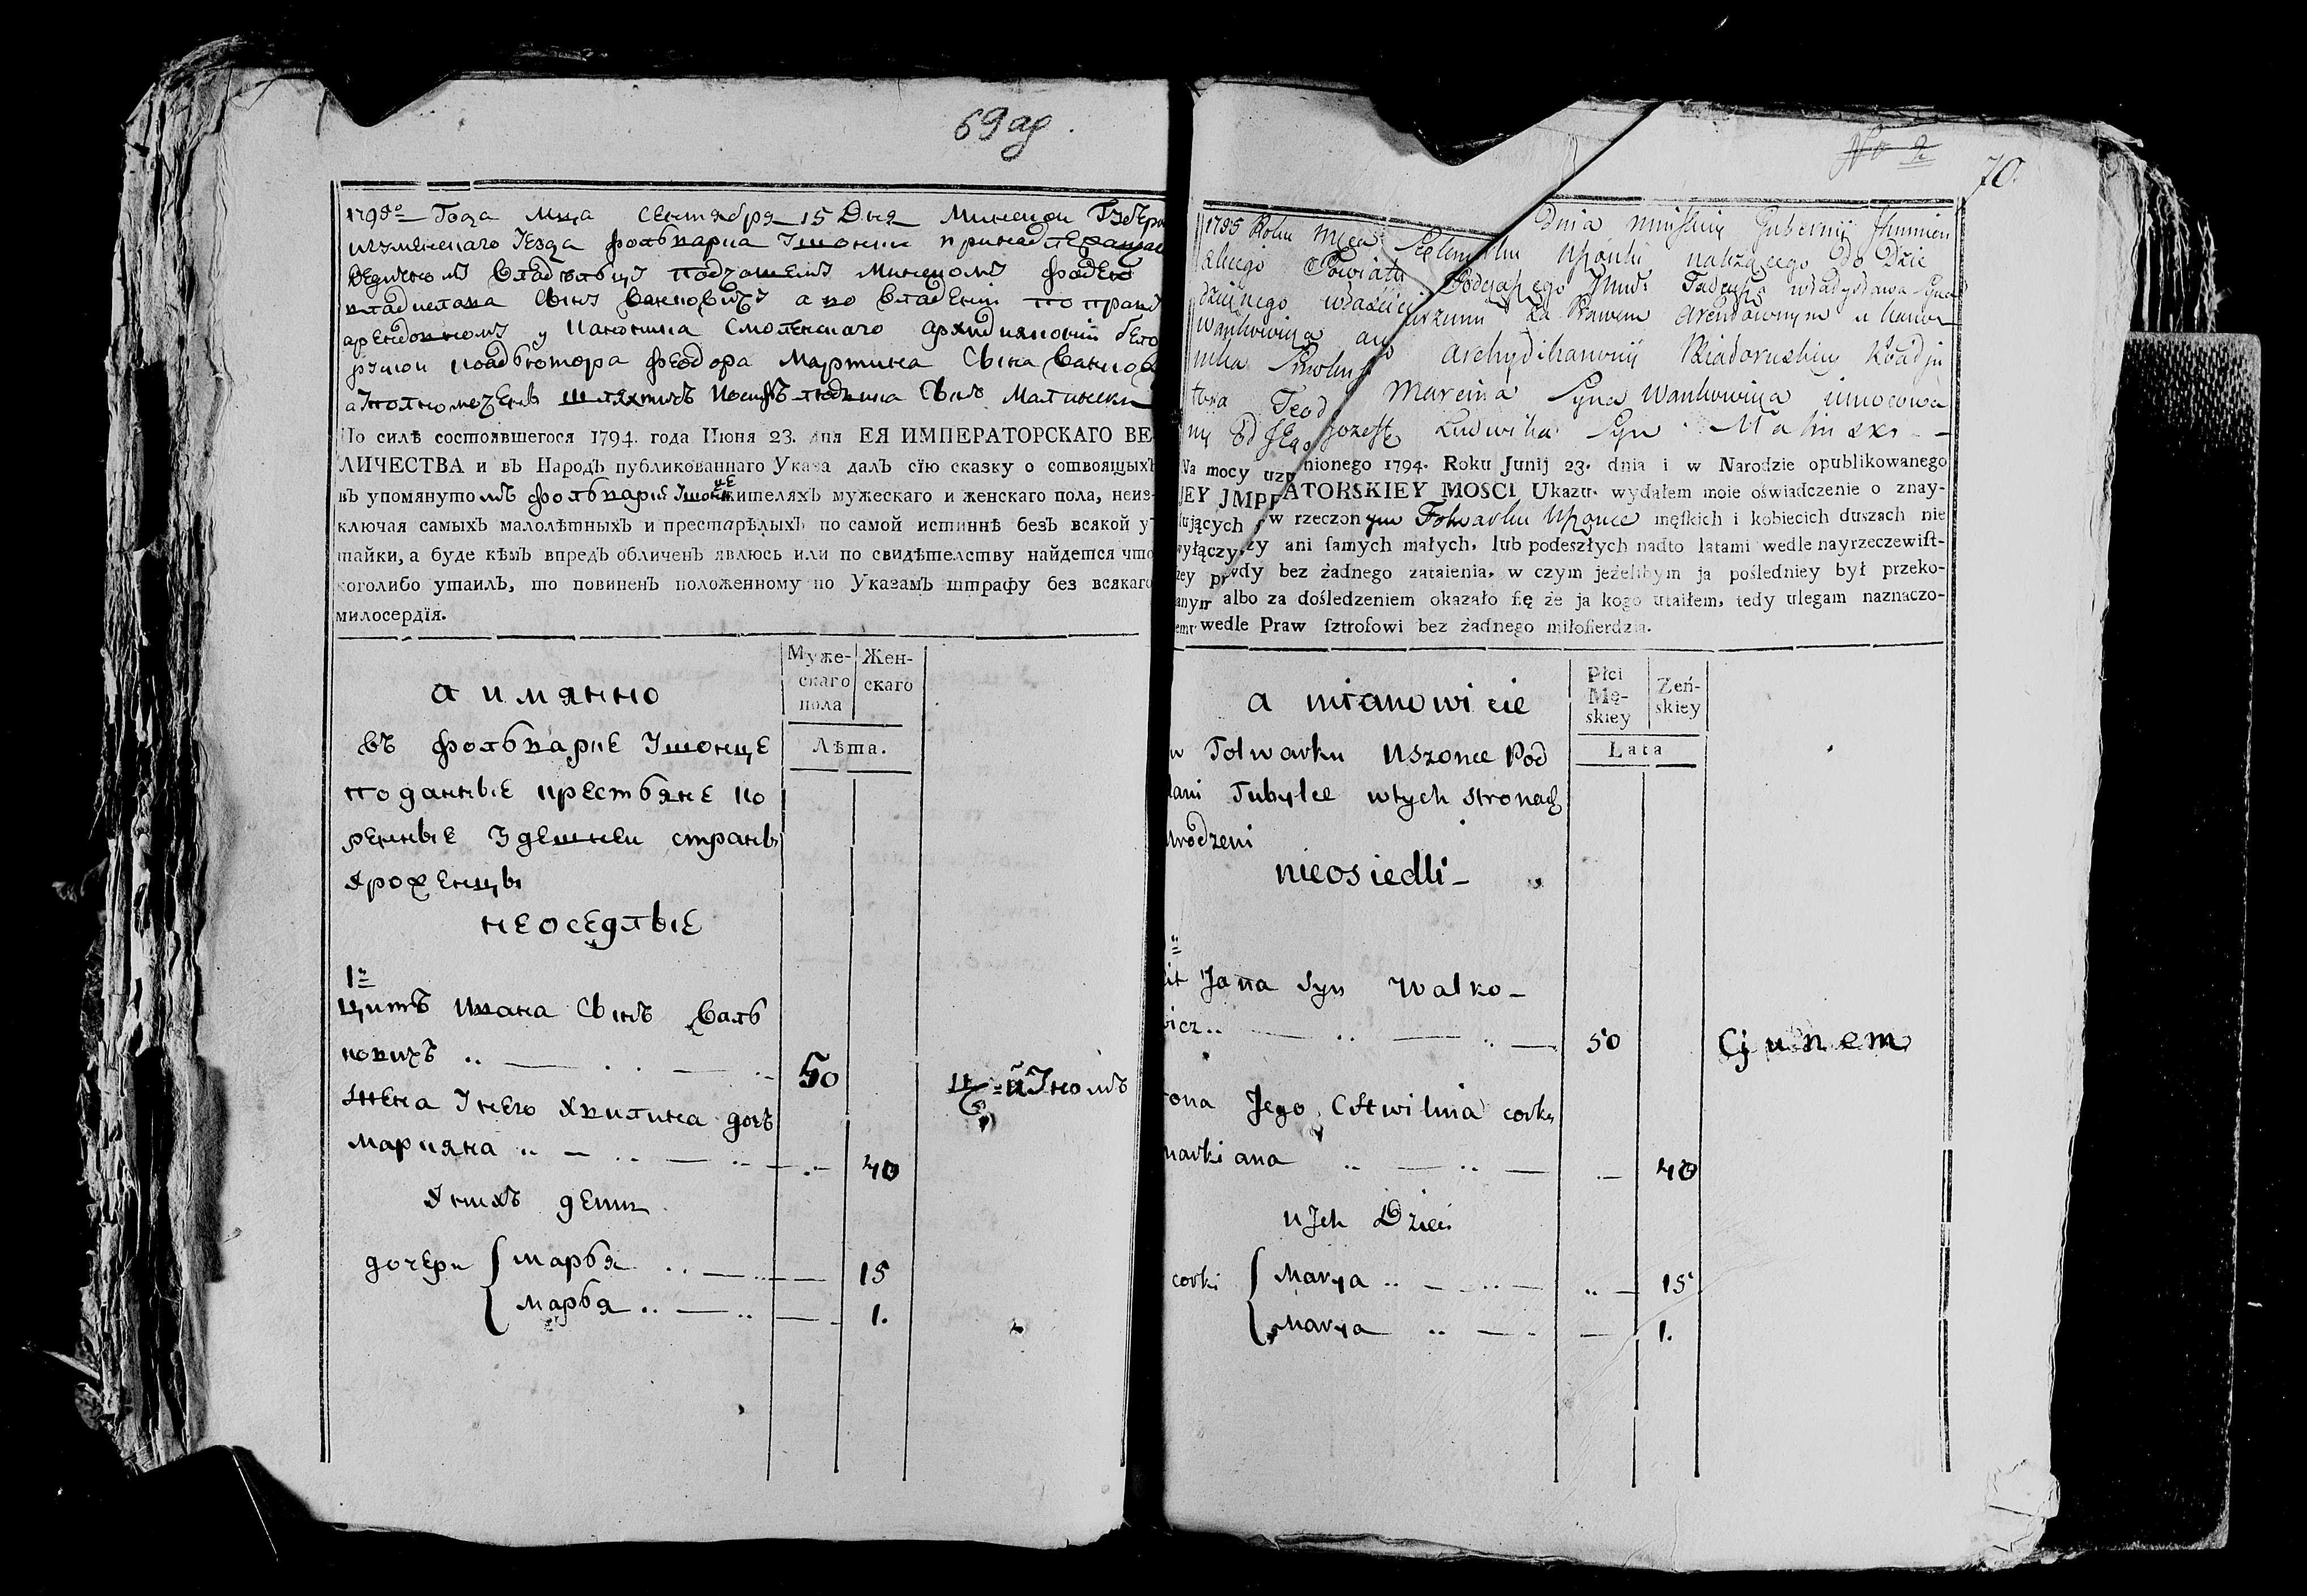 69 аg
1795º Года Мца Сентября 15 Дня Минской Губер
игуменскаго Уезда фольварка Ушонки принадлежащаг
Ведичному владельцу подчашему Минскому фадею
владислава Сыну Ваньковичу а во владении по праву
арендовному у Каноника Смоленскаго архидиякони бело
руской коадьютора феодора Мартина Сына Ванков
а уполномоченъ шляхтичъ Иосифъ людвика Сынъ Малински
По силѣ состоявшегося 1794. года Июня 23. дня ЕЯ ИМПЕРАТОРСКАГО ВЕ
ЛИЧЕСТВА и въ Народъ публикованнаго Указа далъ сїю сказку о сотвоящыхъ
въ упомянутомъ фольварке Ушонце жителяхъ мужескаго и женскаго пола, неиз-
ключая самыхъ малолѣтныхъ и престарѣлыхъ по самой истиннѣ безъ всякой у
тайки, а буде кѣмъ впредъ обличенъ явлюсь или по свидѣтелству найдется что
коголибо утаилъ, то повиненъ положенному по Указамъ штрафу без всякаго
милосердїя.
Муже-скаго пола Жен-скаго
Лѣта.
а имянно
въ фольварке Ушонце
подданные крестьяне ко
ренные здешней страны
урожденцы
неоседлые
1º
титъ Ивана Сынъ Валь
ковичъ .. — . . — .. 50
Жена Унего Хвилина дочъ
Марцияна .. — .. — .. — .. — 40
Унихъ дети
дочери { марья .. — .. — 15
марья .. — .. — 1.
No 2
70.
1795 Roku Mca Septembra Dnia Minskiey Gubernij Ihumien
skiego Powiatu Uszonki należącego do Dzie
dzicznego właścici Podczaszego Minsk: Tadeusza władysława Syna
Wankowicza a Prawem arendownym u kano
nika Smolens Archydikaonij Białoruskiey Koadju
tora Teod Marcina Syna Wankowicza umocowa
ny Od Jego Jozeff Ludwika Syn Malinski - -
Na mocy uzp nionego 1794. Roku Junij 23. dnia i w Narodzie opublikowanego
JEY JMPERATORSKIEY MOSCI Ukazu. wydałem moie oświadczenie o znay-
dujących w rzeczonym Folwarku Uszonce męſkich i kobiecich duszach nie
wyłączyczy ani ſamych małych, lub podeszłych nadto latami wedle nayrzeczewiſt-
szey prawdy bez żadnego zataienia, w czym jeżelibym ja pośledniey był przeko-
nanym albo za dośledzeniem okazało ſię że ja kogo utaiłem, tedy ulegam naznaczo-
nemu wedle Praw ſztrofowi bez żadnego miłoſierdzia.
Płci Mę-skiey Zeń-skiey
Lata
a mianowicie
w Folwarku Uszonce Pod
dani Tubylce wtych stronach
urodzeni
nieosiedli -
it Jana Syn Walko -
wicz .. — .. — .. — 50
żona Jego corka
markiana .. — .. — 40
u Jch Dzieci
corki { Marya .. — .. — 15
Marya .. — . — 1.